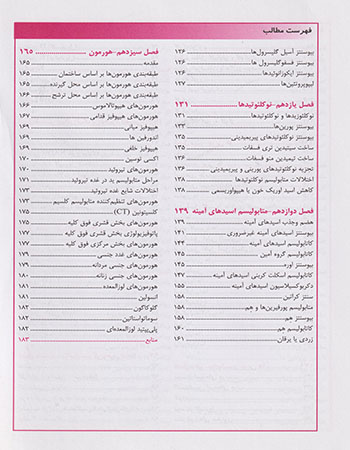 فهرست مطالب
بیوسنتز آسیل گلیسرول‌ها ۱۲۶
بیوسنتز فسفوگلیسرول ها ۱۲۶
بیوسنتز ایکوزانوئیدها ۱۲۶
لیپوپروتئین‌ها ۱۲۷
فصل یازدهم-نوکلئوتیدها ۱۳۱
نوکلئوزیدها و نوکلئوتیدها ۱۳۱
بیوسنتز پورین‌ها ۱۳۳
بیوسنتز نوکلئوتیدهای پیریمیدینی ۱۳۵
ساخت سیتیدین تری فسفات ۱۳۵
ساخت تیمیدین منو فسفات ۱۳۶
تجزیه نوکلئوتیدهای پورینی و پیریمیدینی ۱۳۶
اختلالات متابولیسم نوکلئوتیدها ۱۳۸
کاهش اسید اوریک خون یا هیپواوریسمی ۱۳۸
فصل دوازدهم-متابولیسم اسیدهای آمینه ۱۳۹
هضم وجذب اسیدهای آمینه
بیوسنتز اسیدهای آمینه غیرضروری ۱۴۱
کاتابولیسم اسیدهای آمینه ۱۴۴
کاتابولیسم گروه آمین ۱۴۵
بیوسنتز اوره ۱۴۵
کاتابولیسم اسکلت کربنی اسیدهای آمینه ۱۴۷
دکربوکسیلاسیون اسیدهای آمینه ۱۵۵
سنتز کراتین ۱۵۸
متابولیسم پورفیرین‌ها و هِم ۱۵۸
بیوسنتز هِم ۱۵۸
کاتابولیسم هِم ۱۶۰
زردی یا یرقان ۱۶۱
فصل سیزدهم-هورمون ۱۶۵
مقدمه ۱۶۵
طبقه‌بندی هورمون‌ها بر اساس ساختمان ۱۶۵
طبقه‌بندی هورمون‌ها بر اساس محل گیرنده ۱۶۵
طبقه‌بندی هورمون‌ها بر اساس محل ترشح ۱۶۶
هورمون‌های هیپوتالاموس ۱۶۶
هورمون‌های هیپوفیز قدامی ۱۶۷
هیپوفیز میانی ۱۶۹
اندورفین ها ۱۶۹
هیپوفیز خلفی ۱۶۹
اکسی توسین ۱۷۰
هورمون‌های تیروئید ۱۷۰
مراحل متابولیسم ید در غده تیروئید ۱۷۱
اختلالات شایع غده تیروئید ۱۷۳
هورمون‌های تنظیم‌کننده متابولیسم کلسیم ۱۷۳
کلسیتونین (CT) ۱۷۵
هورمون‌های بخش قشری فوق کلیه ۱۷۵
پاتوفیزیولوژی بخش قشری فوق کلیه ۱۷۷
هورمون‌های بخش مرکزی فوق کلیه ۱۷۷
هورمون‌های غدد جنسی ۱۷۹
هورمون‌های جنسی مردانه ۱۷۹
هورمون‌های جنسی زنانه ۱۸۰
هورمون‌های لوزالمعده ۱۸۱
انسولین ۱۸۱
گلوکاگون ۱۸۱
سوماتواستاتین ۱۸۲
پلی‌پپتید لوزالمعده‌ای ۱۸۲
منابع ۱۸۳